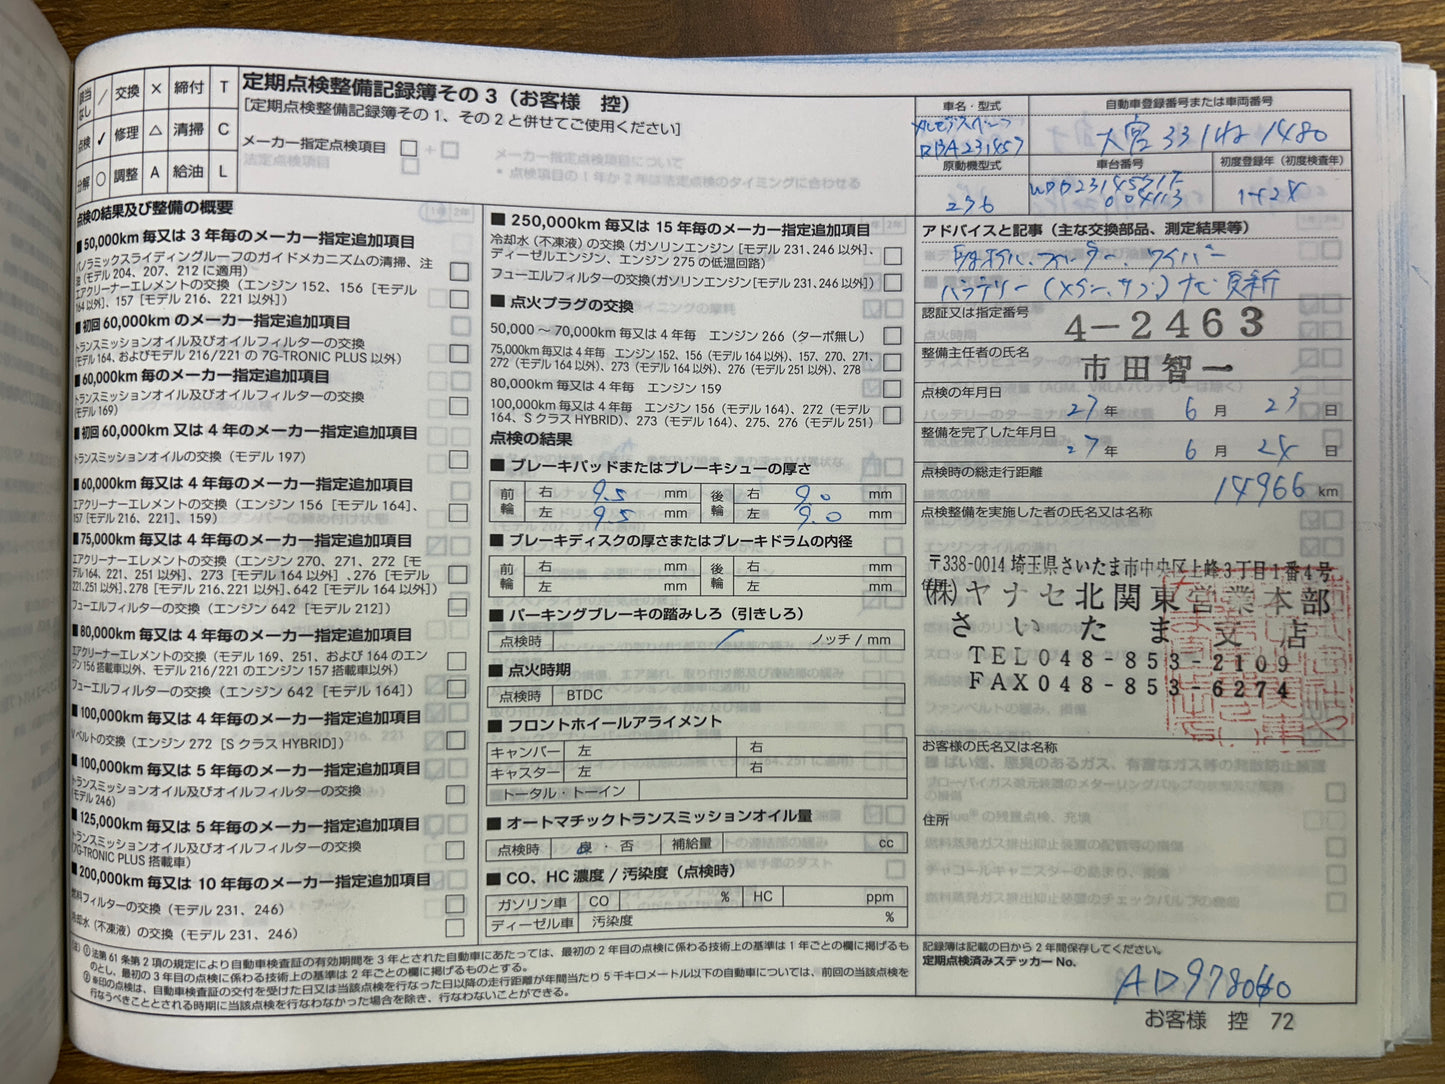 該当なし / 交換 × 締付 T
点検 ✓ 修理 △ 清掃 C
分解 ○ 調整 A 給油 L
定期点検整備記録簿その3（お客様　控）
［定期点検整備記録簿その1、その2と併せてご使用ください］
メーカー指定点検項目 □
点検の結果及び整備の概要
■ 50,000km 毎又は 3 年毎のメーカー指定追加項目
パノラミックスライディングルーフのガイドメカニズムの清掃、注
油（モデル 204、207、212 に適用）
エアクリーナーエレメントの交換（エンジン 152、156［モデル
164 以外］、157［モデル 216、221 以外］）
■ 初回 60,000km のメーカー指定追加項目
トランスミッションオイル及びオイルフィルターの交換
（モデル 164、およびモデル 216/221 の 7G-TRONIC PLUS 以外）
■ 60,000km 毎のメーカー指定追加項目
トランスミッションオイル及びオイルフィルターの交換
（モデル 169）
■ 初回 60,000km 又は 4 年のメーカー指定追加項目
トランスミッションオイルの交換（モデル 197）
■ 60,000km 毎又は 4 年毎のメーカー指定追加項目
エアクリーナーエレメントの交換（エンジン 156［モデル 164］、
157［モデル 216、221］、159）
■ 75,000km 毎又は 4 年毎のメーカー指定追加項目
エアクリーナーエレメントの交換（エンジン 270、271、272［モ
デル 164、221、251 以外］、273［モデル 164 以外］、276［モデル
221、251 以外］、278［モデル 216、221 以外］、642［モデル 164 以外］）
フューエルフィルターの交換（エンジン 642［モデル 212］）
■ 80,000km 毎又は 4 年毎のメーカー指定追加項目
エアクリーナーエレメントの交換（モデル 169、251、および 164 のエン
ジン 156 搭載車以外、モデル 216/221 のエンジン 157 搭載車以外）
フューエルフィルターの交換（エンジン 642［モデル 164］）
■ 100,000km 毎又は 4 年毎のメーカー指定追加項目
Vベルトの交換（エンジン 272［S クラス HYBRID］）
■ 100,000km 毎又は 5 年毎のメーカー指定追加項目
トランスミッションオイル及びオイルフィルターの交換
（モデル 246）
■ 125,000km 毎又は 5 年毎のメーカー指定追加項目
トランスミッションオイル及びオイルフィルターの交換
（7G-TRONIC PLUS 搭載車）
■ 200,000km 毎又は 10 年毎のメーカー指定追加項目
燃料フィルターの交換（モデル 231、246）
冷却水（不凍液）の交換（モデル 231、246）
■ 250,000km 毎又は 15 年毎のメーカー指定追加項目
冷却水（不凍液）の交換（ガソリンエンジン［モデル 231、246 以外］、
ディーゼルエンジン、エンジン 275 の低温回路）
フューエルフィルターの交換（ガソリンエンジン［モデル 231、246 以外］）
■ 点火プラグの交換
50,000 ～ 70,000km 毎又は 4 年毎　エンジン 266（ターボ無し）
75,000km 毎又は 4 年毎　エンジン 152、156（モデル 164 以外）、157、270、271、
272（モデル 164 以外）、273（モデル 164 以外）、276（モデル 251 以外）、278
80,000km 毎又は 4 年毎　エンジン 159
100,000km 毎又は 4 年毎　エンジン 156（モデル 164）、272（モデル
164、S クラス HYBRID）、273（モデル 164）、275、276（モデル 251）
点検の結果
■ ブレーキパッドまたはブレーキシューの厚さ
前輪 右 9.5 mm 後輪 右 9.0 mm
左 9.5 mm 左 9.0 mm
■ ブレーキディスクの厚さまたはブレーキドラムの内径
前輪 右 mm 後輪 右 mm
左 mm 左 mm
■ パーキングブレーキの踏みしろ（引きしろ）
点検時 / ノッチ / mm
■ 点火時期
点検時 BTDC
■ フロントホイールアライメント
キャンバー 左 右
キャスター 左 右
トータル・トーイン
■ オートマチックトランスミッションオイル量
点検時 良・否 補給量 cc
■ CO、HC 濃度 / 汚染度（点検時）
ガソリン車 CO % HC ppm
ディーゼル車 汚染度 %
車名・型式
自動車登録番号または車両番号
大宮 331
1480
原動機型式
276
車台番号
初度登録年（初度検査年）
アドバイスと記事（主な交換部品、測定結果等）
バッテリー（メイン、サブ）ナビ更新
認証又は指定番号
4-2463
整備主任者の氏名
市田智一
点検の年月日
27 年 6 月 23 日
整備を完了した年月日
27 年 6 月 24 日
点検時の総走行距離
14966 km
点検整備を実施した者の氏名又は名称
〒338-0014 埼玉県さいたま市中央区上峰3丁目1番4号
（株）ヤナセ北関東営業本部
さいたま支店
TEL048-853-2109
FAX048-853-6274
お客様の氏名又は名称
住所
記録簿は記載の日から 2 年間保存してください。
定期点検済みステッカー No.
（注）① 法第 61 条第 2 項の規定により自動車検査証の有効期間を 3 年とされた自動車にあたっては、最初の 2 年目の点検に係わる技術上の基準は 1 年ごとの欄に掲げるも
のとし、最初の 3 年目の点検に係わる技術上の基準は 2 年ごとの欄に掲げるものとする。
② ※印の点検は、自動車検査証の交付を受けた日又は当該点検を行なった日以降の走行距離が年間当たり 5 千キロメートル以下の自動車については、前回の当該点検を
行なうべきこととされる時期に当該点検を行なわなかった場合を除き、行なわないことができる。
お客様　控　72